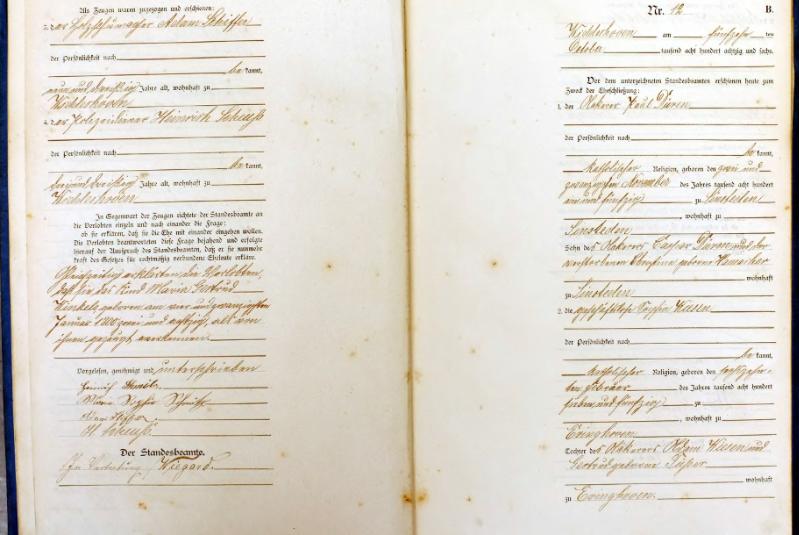 Als Zeugen waren zugezogen und erschienen:
1. der Holzschumacher Adam Schiffer
der Persönlichkeit nach
be kannt,
neun und dreißig Jahre alt, wohnhaft zu
2. der Polizeidiener Heinrich Schuß
der Persönlichkeit nach
be kannt,
drei und dreißig Jahre alt, wohnhaft zu
In Gegenwart der Zeugen richtete der Standesbeamte an
die Verlobten einzeln und nach einander die Frage:
ob sie erklären, daß sie die Ehe mit einander eingehen wollen.
Die Verlobten beantworteten diese Frage bejahend und erfolgte
hierauf der Ausspruch des Standesbeamten, daß er sie nunmehr
kraft des Gesetzes für rechtmäßig verbundene Eheleute erkläre.
Gleichzeitig erklärten die Verlobten,
daß sie das Kind Maria Gertrud
geboren am vier und zwanzigsten
Januar 1800 zwei und achtzig, als von
ihnen gezeugt anerkennen.
Vorgelesen, genehmigt und unterschrieben
Heinrich
Maria Sophia
H. Schuß
Der Standesbeamte.
In Vertretung Wiegard.
Nr. 12
B.
am fünfzehn ten
October tausend acht hundert achtzig und sechs.
Vor dem unterzeichneten Standesbeamten erschienen heute zum
Zweck der Eheschließung:
1. der Ackerer Paul Düren
der Persönlichkeit nach
be kannt,
katholischer Religion, geboren den zwei und
zwanzigsten November des Jahres tausend acht hundert
ein und fünfzig zu Sinsteden
, wohnhaft zu
Sinsteden
Sohn des Ackerers Caspar Düren und der
verstorbenen geborene
wohnhaft
zu Sinsteden
2. die geschäftslose Sophia
der Persönlichkeit nach
be kannt,
katholischer Religion, geboren den sechszehn
ten Februar des Jahres tausend acht hundert
sieben und fünfzig zu
, wohnhaft zu
Evinghoven
Tochter des Ackerers Adam und
Gertrud geborene
wohnhaft
zu Evinghoven